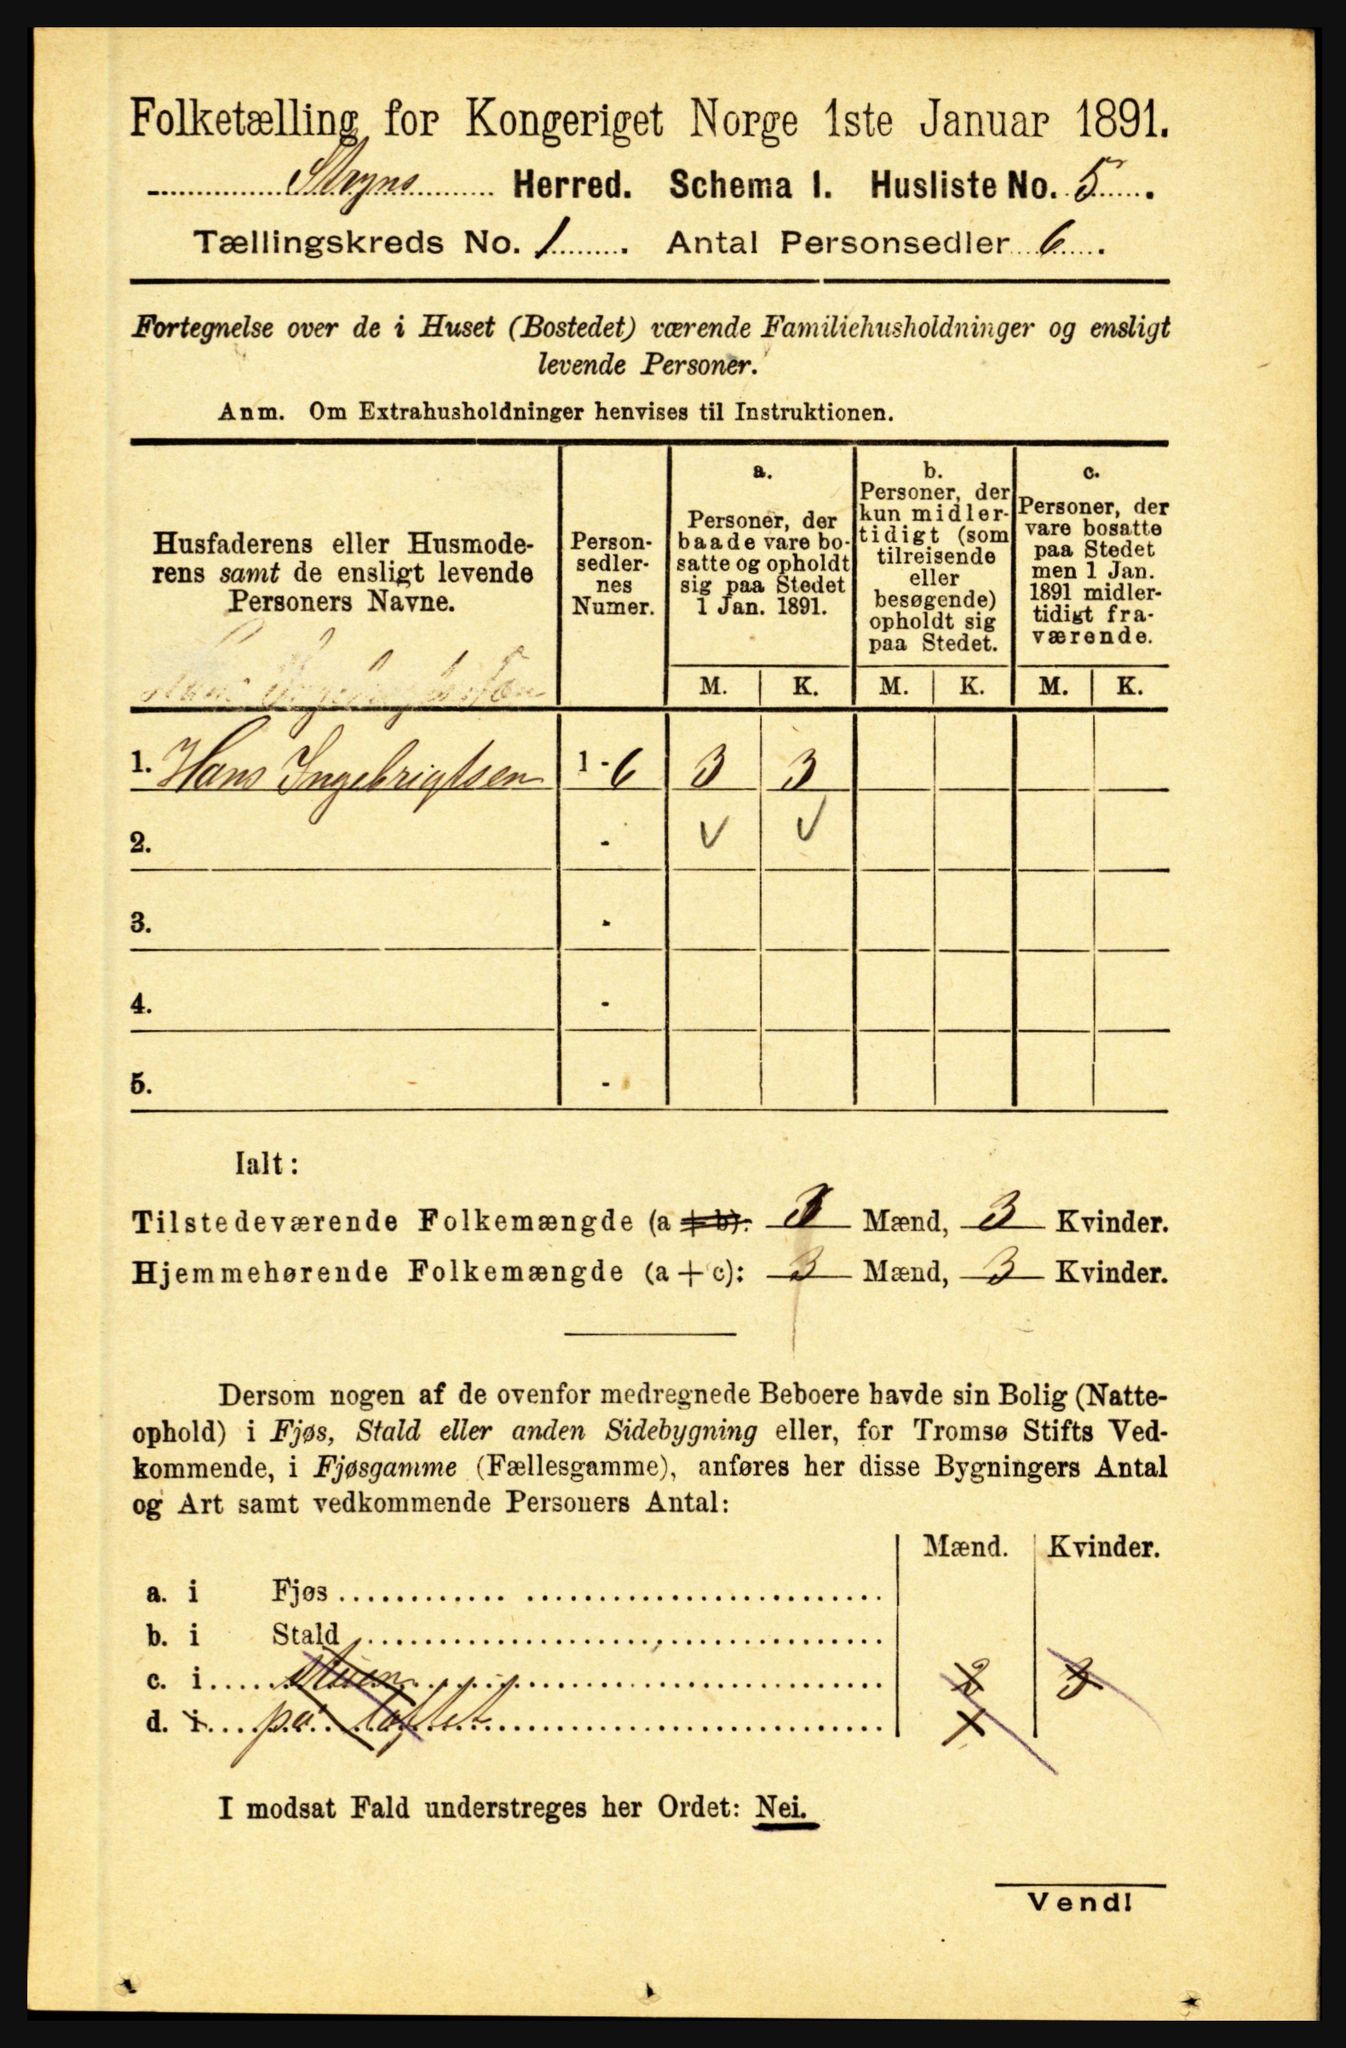 Folketælling for Kongeriget Norge 1ste Januar 1891.
Stryns Herred. Schema I. Husliste No. 5.
Tællingskreds No. 1. Antal Personsedler 6.
Fortegnelse over de i Huset (Bostedet) værende Familiehusholdninger og ensligt
levende Personer.
Anm. Om Extrahusholdninger henvises til Instruktionen.
Husfaderens eller Husmode-
rens samt de ensligt levende
Personers Navne.
Person-
sedler-
nes
Numer.
a.
Personer, der
baade vare bo-
satte og opholdt
sig paa Stedet
1 Jan. 1891.
b.
Personer, der
kun midler-
tidigt (som
tilreisende
eller
besøgende)
opholdt sig
paa Stedet.
c.
Personer, der
vare bosatte
paa Stedet
men 1 Jan.
1891 midler-
tidigt fra-
værende.
Hans Ingebrigtsen
M. K. M. K. M. K.
1. Hans Ingebrigtsen 1-6 3 3
2. -
3. -
4. -
5. -
Ialt:
Tilstedeværende Folkemængde (a + b): 3 Mænd, 3 Kvinder.
Hjemmehørende Folkemængde (a + c): 3 Mænd, 3 Kvinder.
Dersom nogen af de ovenfor medregnede Beboere havde sin Bolig (Natte-
ophold) i Fjøs, Stald eller anden Sidebygning eller, for Tromsø Stifts Ved-
kommende, i Fjøsgamme (Fællesgamme), anføres her disse Bygningers Antal
og Art samt vedkommende Personers Antal:
Mænd. Kvinder.
a. i Fjøs
b. i Stald
c. i stuen 2 3
d. i på loftet 1
I modsat Fald understreges her Ordet: Nei.
Vend!